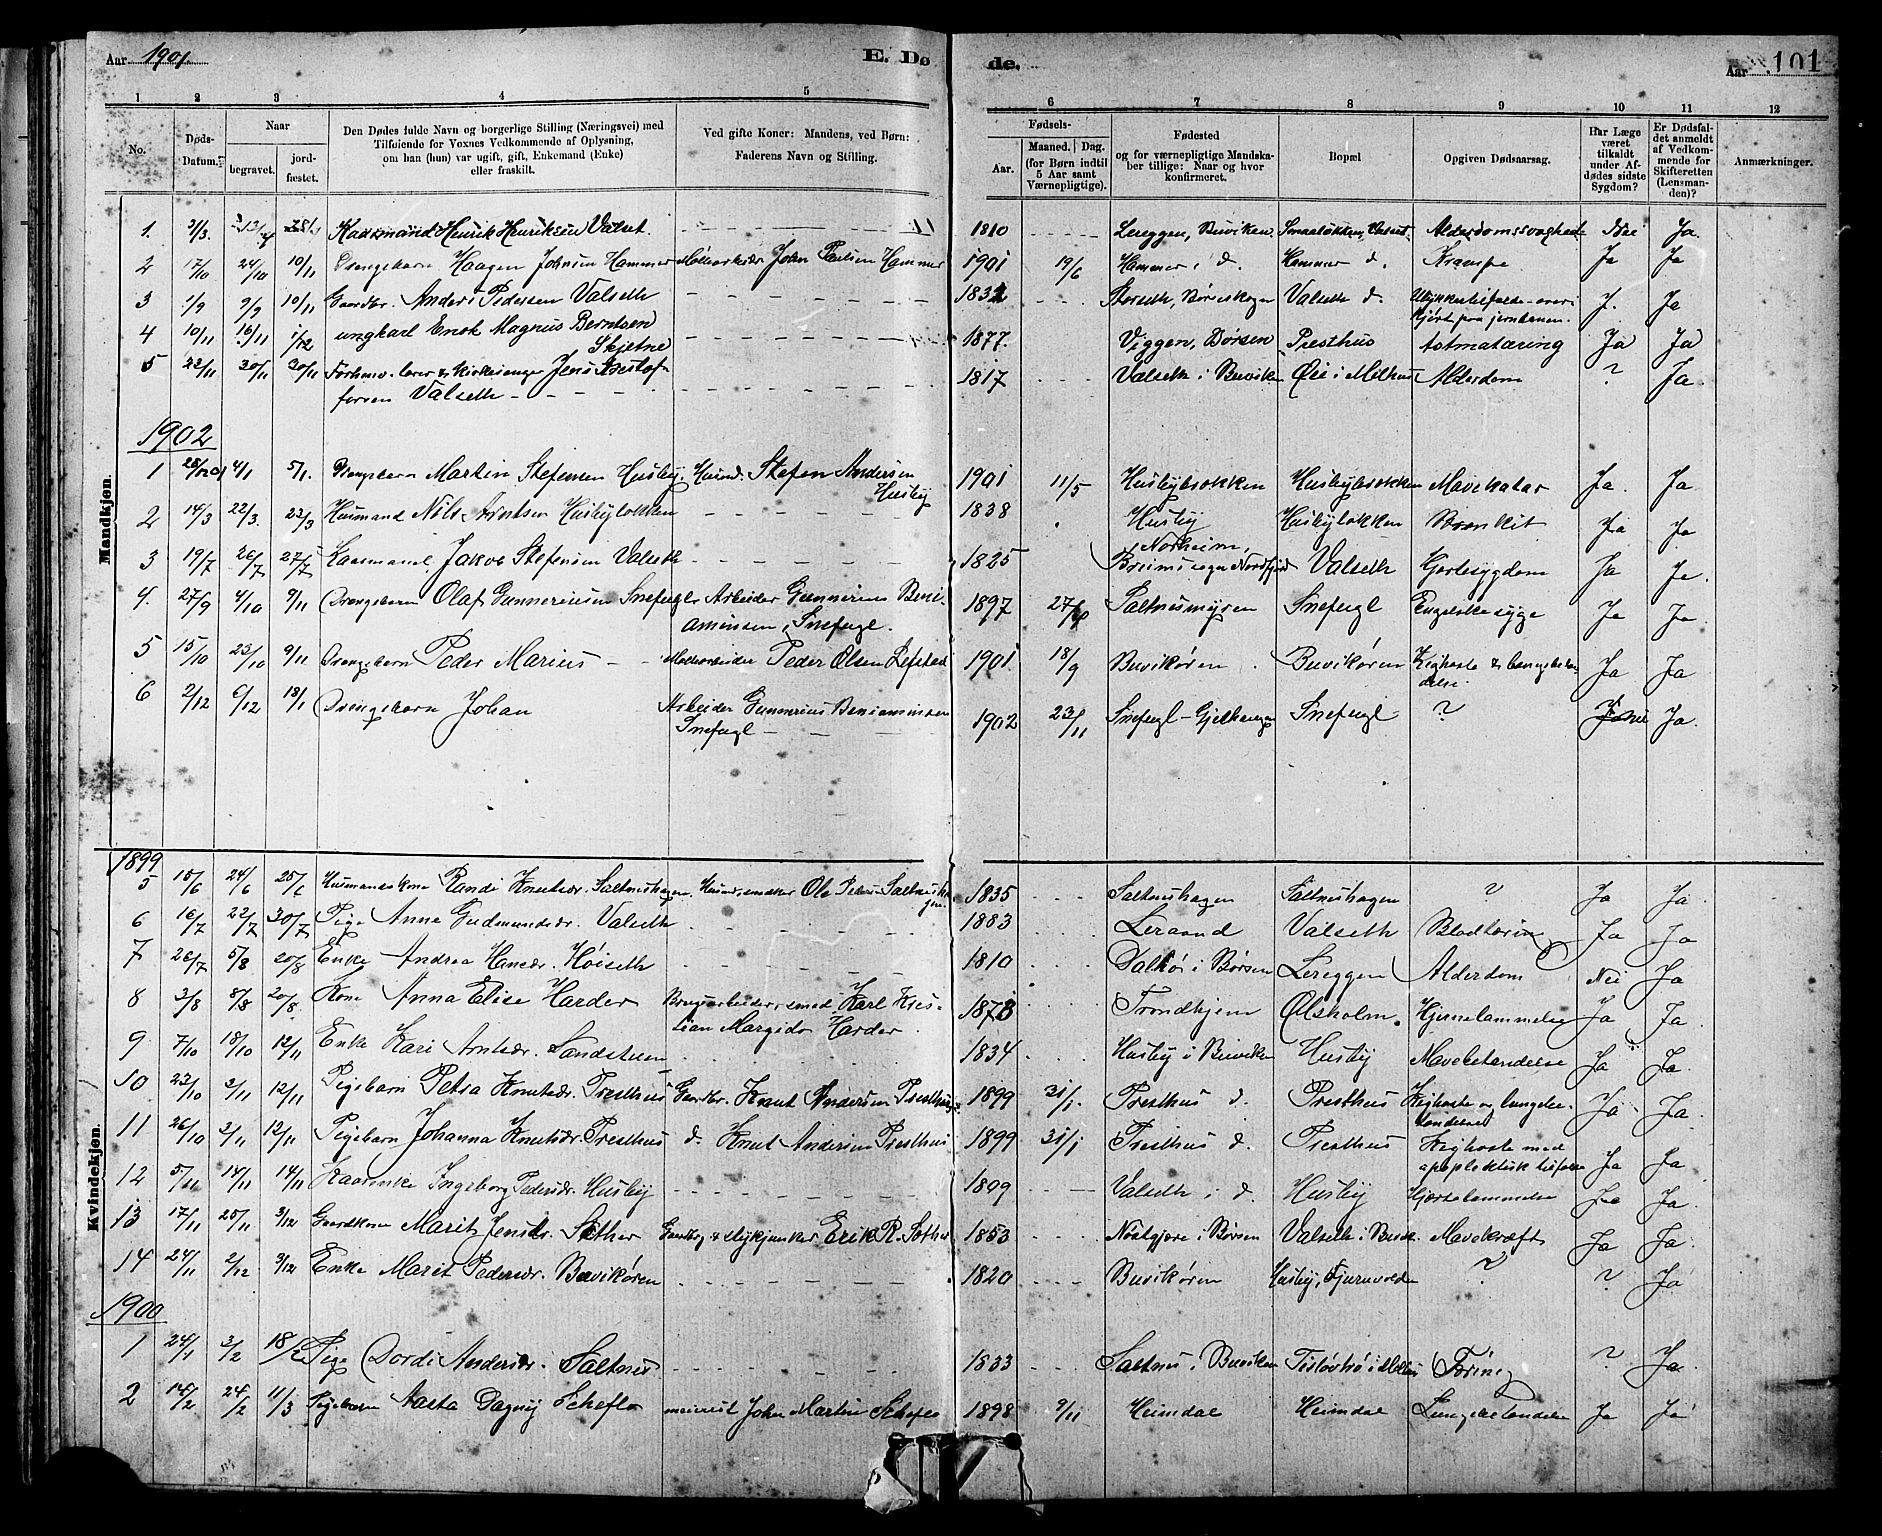 Aar 1901. E. Dø de. Aar 101
1 2 3 4 5 6 7 8 9 10 11 12
No. Døds-Datum. Naar begravet. jord-fæstet. Den Dødes fulde Navn og borgerlige Stilling (Næringsvei) med Tilføiende for Voxnes Vedkommende af Oplysning, om han (hun) var ugift, gift, Enkemand (Enke) eller fraskilt. Ved gifte Koner: Mandens, ved Børn: Faderens Navn og Stilling. Fødsels- Aar. Maaned. Dag. (for Børn indtil 5 Aar samt Værnepligtige). Fødested og for værnepligtige Mandskaber tillige: Naar og hvor konfirmeret. Bopæl Opgiven Dødsaarsag. Har Læge været tilkaldt under Afdødes sidste Sygdom? Er Dødsfaldet anmeldt af Vedkommende for Skifteretten (Lensmanden)? Anmærkninger.
Mandkjøn.
1. 3/3. Kaarmand Henrik Henriksen Valset. 1810 Lereggen, Buviken Alderdomssvaghed Ja.
2 17/10 24/10 10/11 Drengebarn Haagen Johnsen Hammer John Paulsen Hammer 1901 19/6 Hammer i d. Hammer d. Krampe Ja Ja
3 1/9 9/9 10/11 Gaardbr. Anders Pedersen Valseth Børseskogn Valseth d. Ulykkestilfælde - over-kjørt paa jernbanen. J. Ja
4 10/11 16/11 1/12 ungkarl Enok Magnus Berntsen Skjetne 1877. Viggen, Børsen Presthus Ja Ja
5 22/11 30/11 30/11 Forhenv. lærer & kirkesanger Jens Kristof-fersen Valseth 1817 Valseth i Buviken Øie i Melhus Alderdom ? Ja.
1902
1 4/1 5/1. Drengebarn Martin Stefensen Husby. Husmd. Stefen Andersen Husby 1901 11/5 Mavekatar Ja. Ja
2 14/3 22/3. 23/3 Husmand Nils Arntsen Husbyløkken 1838 Husby Husbyløkken Bronkit Ja Ja
3 19/7 26/7 27/7 Kaarmand. Jakob Stefensen Valseth 1825 Norheim, Breims sogn Nordfjord Valseth Hjertesygdom Ja Ja.
4. 27/9 4/10 9/11 Drengebarn Olaf Gunneriusen Snefugl Arbeider Gunnerius Beni-aminsen, Snefugl. 1897 Saltnesmyren Snefugl Engelske syge Ja Ja
5 15/10 23/10 9/11 Drengebarn Peder Marius Peder Olsen 1901 18/9 Buvikøren Buvikøren Kighoste & lungebetæn-delse. Ja Ja
6 2/12 6/12 18/1 Drengebarn Johan Arbeider Gunnerius Beniaminsen Snefugl 1902 23/11 Snefugl Snefugl ? Ja.
Kvindekjøn.
1899
5 15/6 24/6 25/6 Husmandskone Randi Knutsdr. Saltneshagen. Ole Peders. 1835 Saltneshagen Saltneshagen ? Ja Ja.
6 16/7 22/7 30/7 Pige Anne Gudmundsdr. Valseth 1883 Lersand Valseth Blodtæring Ja Ja
7 26/7 5/8 20/8 Enke Andrea Hansdr. Høiseth 1810 i Børsen Lereggen Alderdom Nei Ja
8 3/8 8/8 20/8. Kone Anna Elise Harder Brugsarbeider, smed Karl Kris-tian Margido Harder. Trondhjem Ølsholm. Hjernelammelse Ja Ja.
9 7/10 18/10 12/11 Enke Kari Arntsdr. 1834 Husby i Buviken Husby Mavebetændelse Ja Ja.
10 23/10 2/11 12/11 Pigebarn Petra Knutsdr. Presthus Gaardbr. Knut Andersen Presthus 1899 31/1. Presthus d. Presthus Kighoste og lungebe-tændelse Ja Ja.
11 26/10 2/11 12/11 Pigebarn Johanna Knutsdr. Presthus d. Knut Andersen Presthus 1899 31/1 Presthus d. Presthus Kighoste med apoplektisk tilfælde Ja Ja
12 5/11 14/11 14/11 Kaarenke Ingeborg Pedersdr. Husby Valseth i d. Husby Hjertelammelse Ja Ja.
13 17/11 25/11 3/12 Gaardkone Marit Jensdr. Sæther Erik R. Sæther 1853 i Børsen Valseth i Buvik. Mavekræft Ja Ja.
14 24/11 2/12 3/12 Enke Marit Pedersdr. Buvikøren 1820 Buvikøren Husby, ? ? Ja
1900
1 24/1 3/2 18/2 Pige Dordi Andersdr. Saltnes 1833 Saltnes i Buviken Tæring ? Ja.
2 14/2 24/2 11/3 Pigebarn Aasta Dagny Schefte meierist John Martin Schefte 1898 9/11 Heimdal Heimdal Lungebetændelse Ja Ja